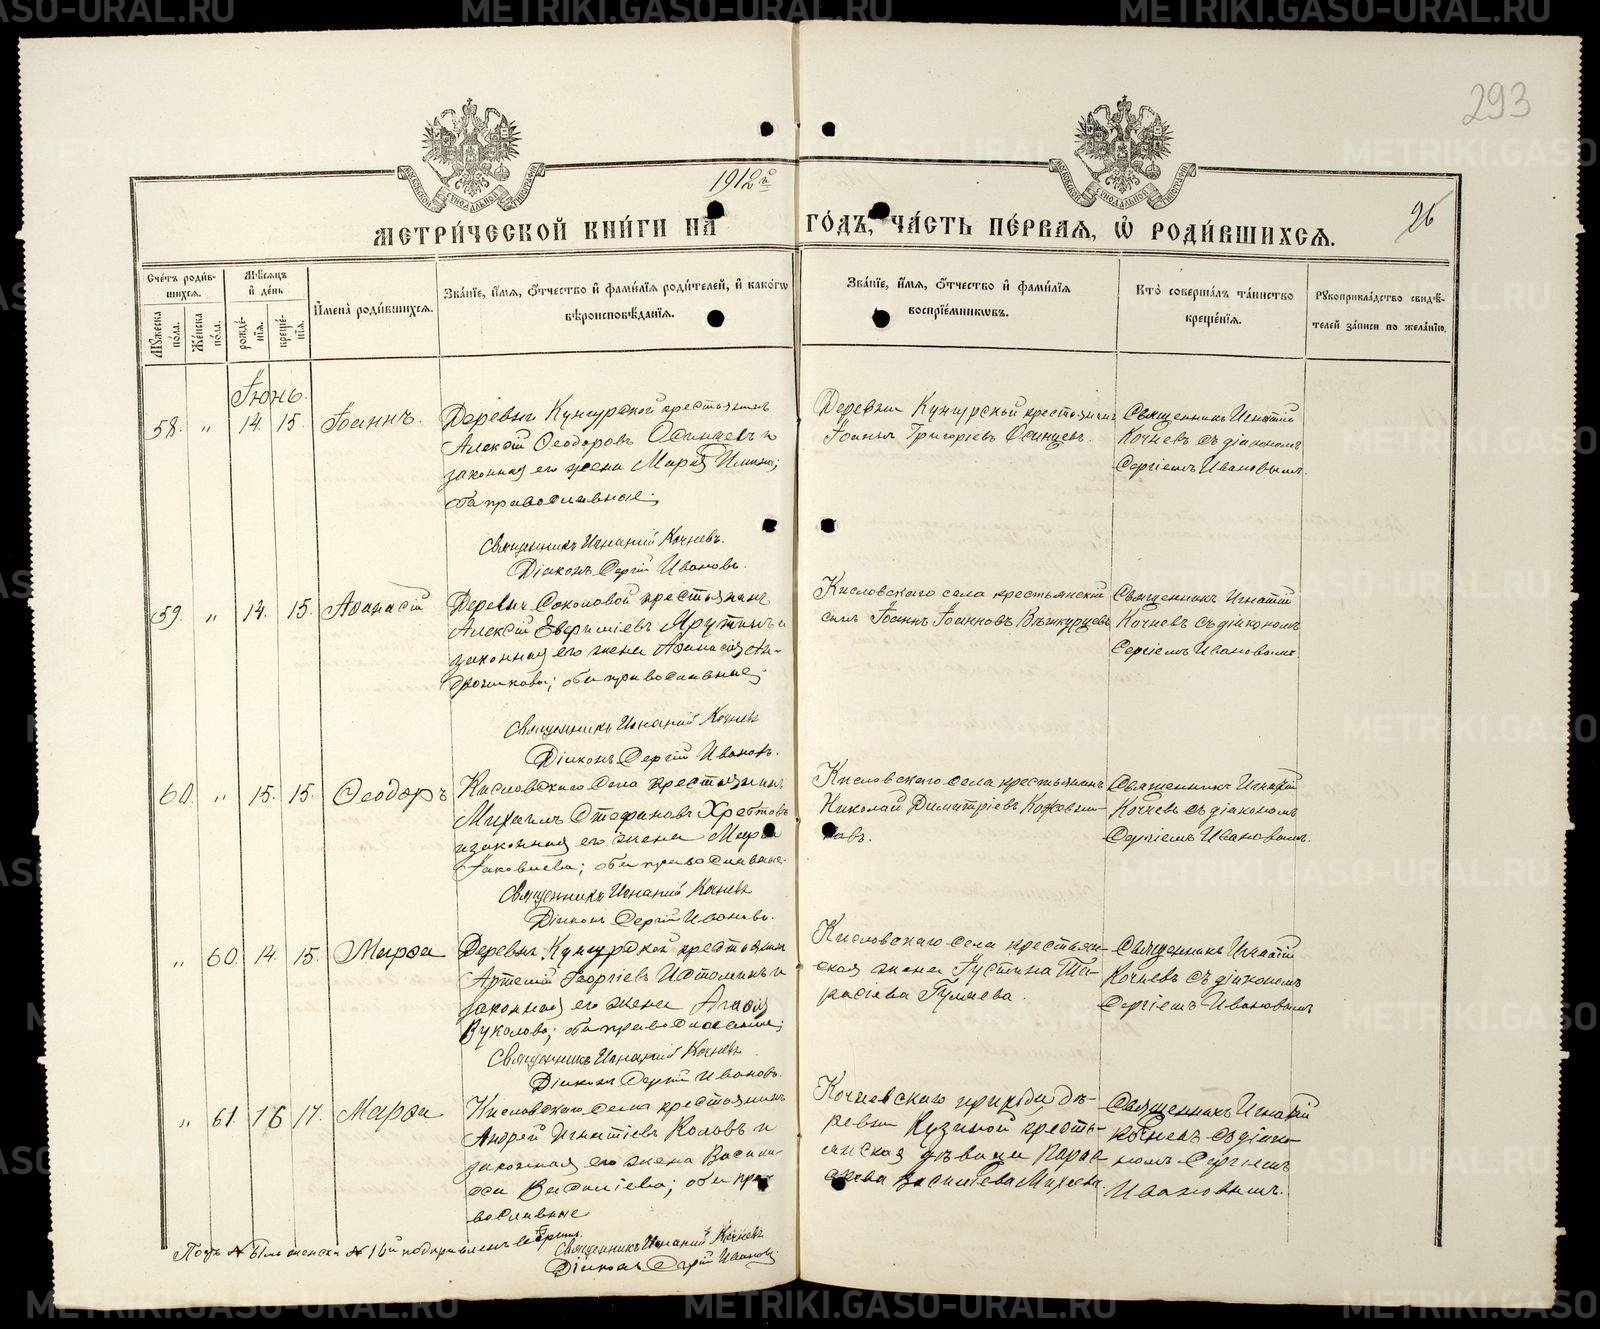 293
1912й
26
МОСКОВСКОЙ СѴНОДАЛЬНОЙ ТИПОГРАФІИ
МОСКОВСКОЙ СѴНОДАЛЬНОЙ ТИПОГРАФІИ
МЕТРИ́ЧЕСКОЙ КНИ́ГИ НА ГО́ДЪ, ЧА́СТЬ ПЕ́РВАЯ, Ѡ РОДИ́ВШИХСЯ.
Сче́тъ роди́вшихся.
Мѣ́сяцъ и де́нь
Му́жеска по́ла.
Же́нска по́ла.
рожде́нія.
креще́нія.
Имена̀ роди́вшихся.
Зва́ніе, и́мя, о́тчество и фами́лія роди́телей, и како́гѡ вѣроисповѣ́данія.
Зва́ніе, и́мя, о́тчество и фами́лія воспріе́мникѡвъ.
Кто̀ соверша́лъ та́инство креще́нія.
Рукоприкла́дство свидѣ́телей за́писи по жела́нію.
Іюнь.
58. „ 14. 15. Іоаннъ.
Деревни Кунгурской крестьянинъ
Алексій Ѳеодоровъ Осинцевъ и
законная его жена Марія
оба православные;
Священникъ Игнатій Кочневъ.
Діаконъ Сергій Ивановъ.
Деревни Кунгурской крестьянинъ
Іоаннъ Григоріевъ Осинцевъ.
Священникъ Игнатій
Кочневъ съ діакономъ
Сергіемъ Ивановымъ.
59. „ 14. 15. Аѳанасій
Деревни Соколовой крестьянинъ
Алексій Ярутинъ и
законная его жена Аѳанасія
оба православные;
Священникъ Игнатій Кочневъ
Діаконъ Сергій Ивановъ.
Кисловскаго села крестьянскій
сынъ Іоаннъ Іоанновъ
Священникъ Игнатій
Кочневъ съ діакономъ
Сергіемъ Ивановымъ.
60. „ 15. 15. Ѳеодоръ
Кисловскаго села крестьянинъ
Михаилъ Стефановъ
и законная его жена Марія
Іаковлева; оба православные.
Священникъ Игнатій Кочневъ
Діаконъ Сергій Ивановъ.
Кисловскаго села крестьянинъ
Николай Димитріевъ Кожевни-
ковъ.
Священникъ Игнатій
Кочневъ съ діакономъ
Сергіемъ Ивановымъ.
„ 60. 14. 15. Марѳа
Деревни Кунгурской крестьянинъ
Артемій Георгіевъ Истоминъ и
законная его жена Агаѳія
Вуколова; оба православные;
Священникъ Игнатій Кочневъ
Діаконъ Сергій Ивановъ.
Кисловскаго села крестьян-
ская жена Іустина Та-
расіева Гуляева.
Священникъ Игнатій
Кочневъ съ діакономъ
Сергіемъ Ивановымъ
„ 61. 16 17. Марѳа
Кисловскаго села крестьянинъ
Андрей Игнатіевъ Коловъ и
законная его жена Васили-
са Васильева; оба пра-
вославные
Священникъ Игнатій Кочневъ
Діаконъ Сергій Ивановъ
Кочневскаго прихода, де-
ревни Кузиной кресть-
янская дѣвица Парас-
кева Василіева Михеева.
Священникъ Игнатій
Кочневъ съ діако-
номъ Сергіемъ
Ивановымъ.